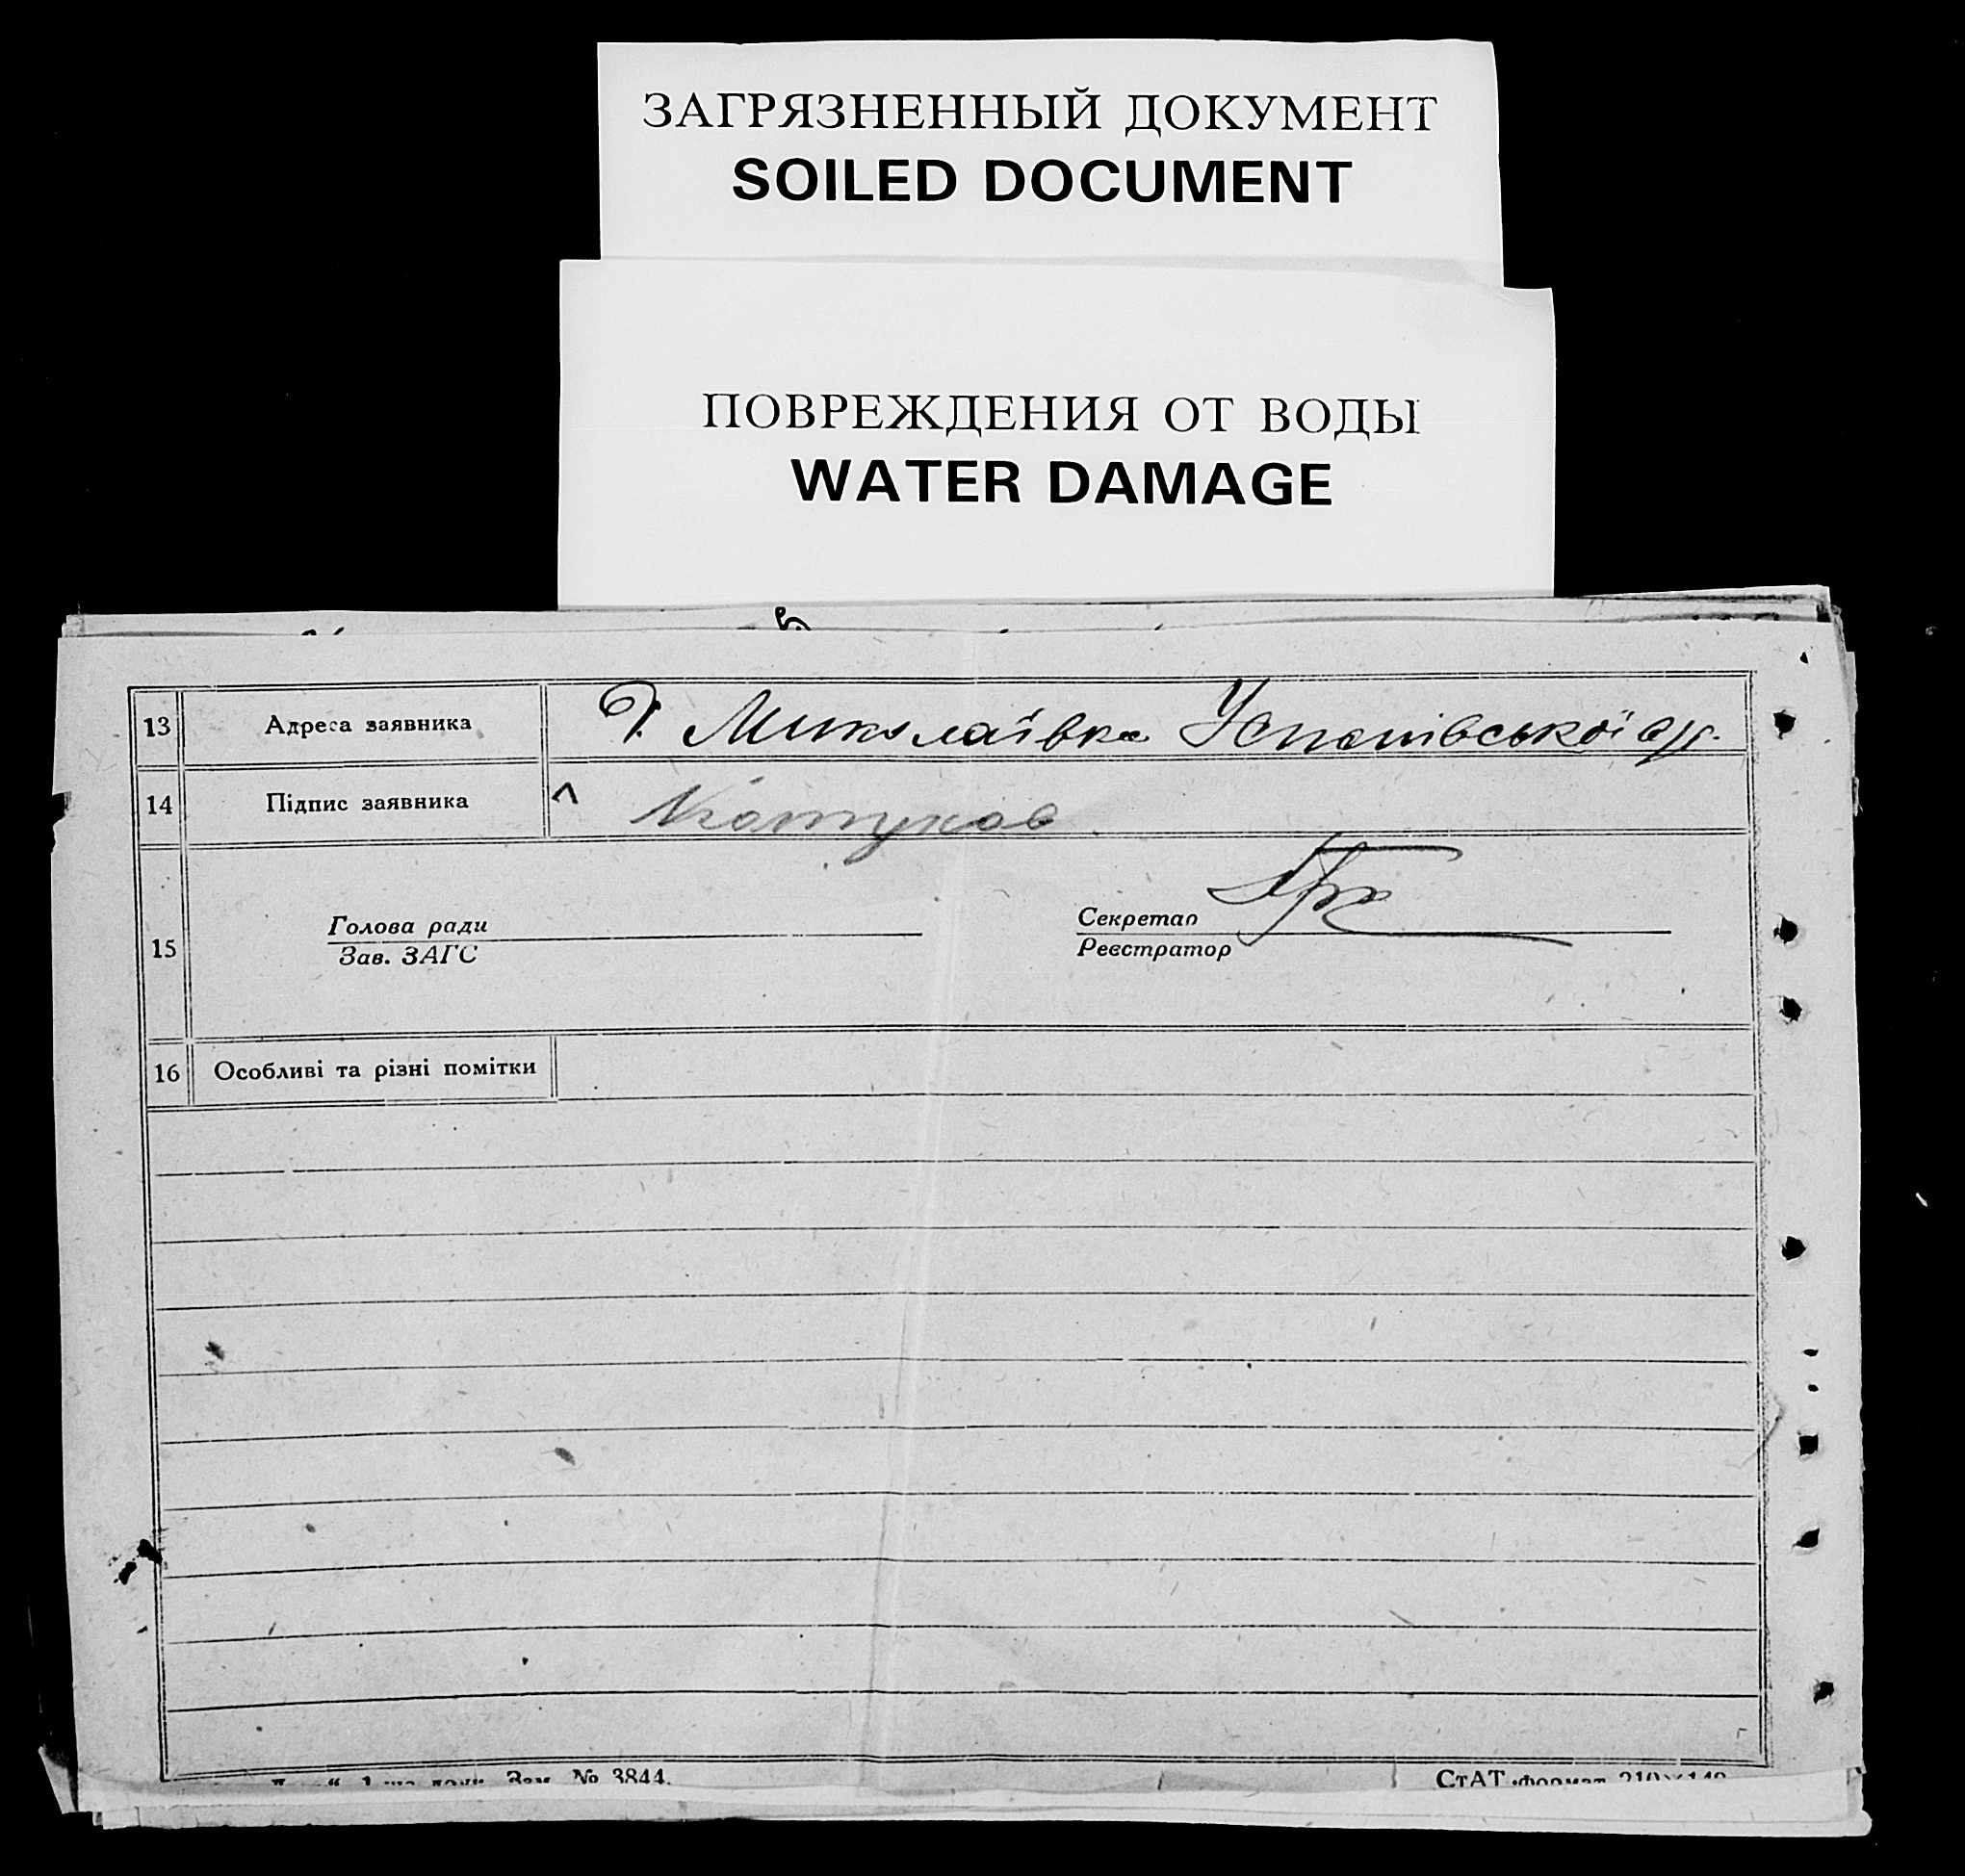 ЗАГРЯЗНЕННЫЙ ДОКУМЕНТ
SOILED DOCUMENT
ПОВРЕЖДЕНИЯ ОТ ВОДЫ
WATER DAMAGE
13 Адреса заявника Миколаївка
14 Підпис заявника
15 Голова ради Секретар
Зав. ЗАГС Реєстратор
16 Особливі та різні помітки
Зам. № 3844. СтАТ формат 210×148